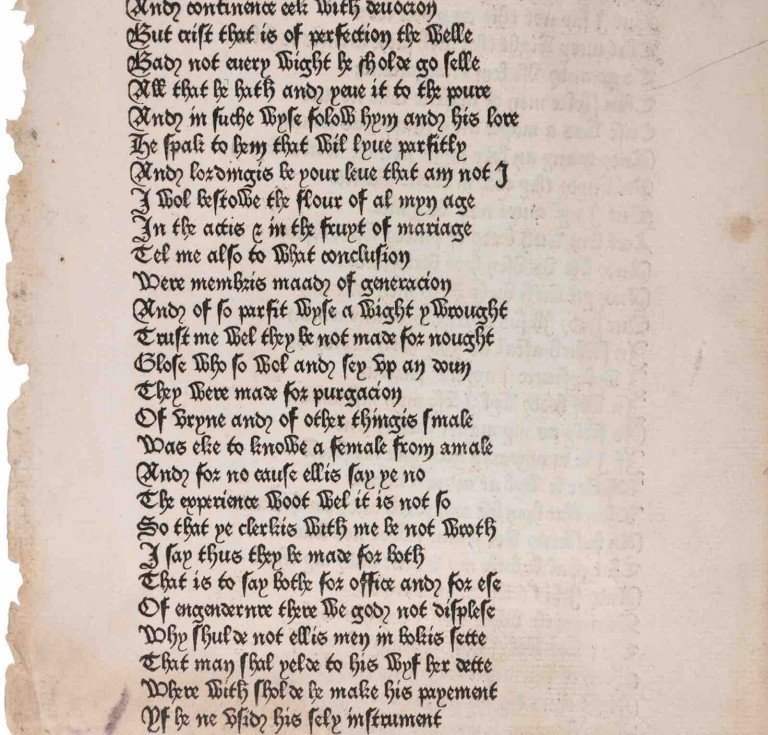 And continence eek with deuocion
But crist that is of perfection the welle
Bad not euery wight he sholde go selle
All that he hath and yeue it to the poure
And in suche wyse folow hym and his lore
He spak to hem that wil lyue parfitly
And lordingis be your leue that am not I
I wol bestowe the flour of al myn age
In the actis & in the fruyt of mariage
Tel me also to what conclusion
Were membris maad of generacion
And of so parfit wyse a wight ywrought
Trust me wel they be not made for nought
Glose who so wol and sey vp an doun
They were made for purgacion
Of vryne and of other thingis smale
Was eke to knowe a female from amale
And for no cause ellis say ye no
The experience woot wel it is not so
So that ye clerkis with me be not wroth
I say thus they be made for both
That is to say bothe for office and for ese
Of engendernre there we god not displese
Why shulde not ellis men in bokis sette
That man shal yelde to his wyf her dette
Where with sholde he make his payement
Yf he ne vsid his sely instrument